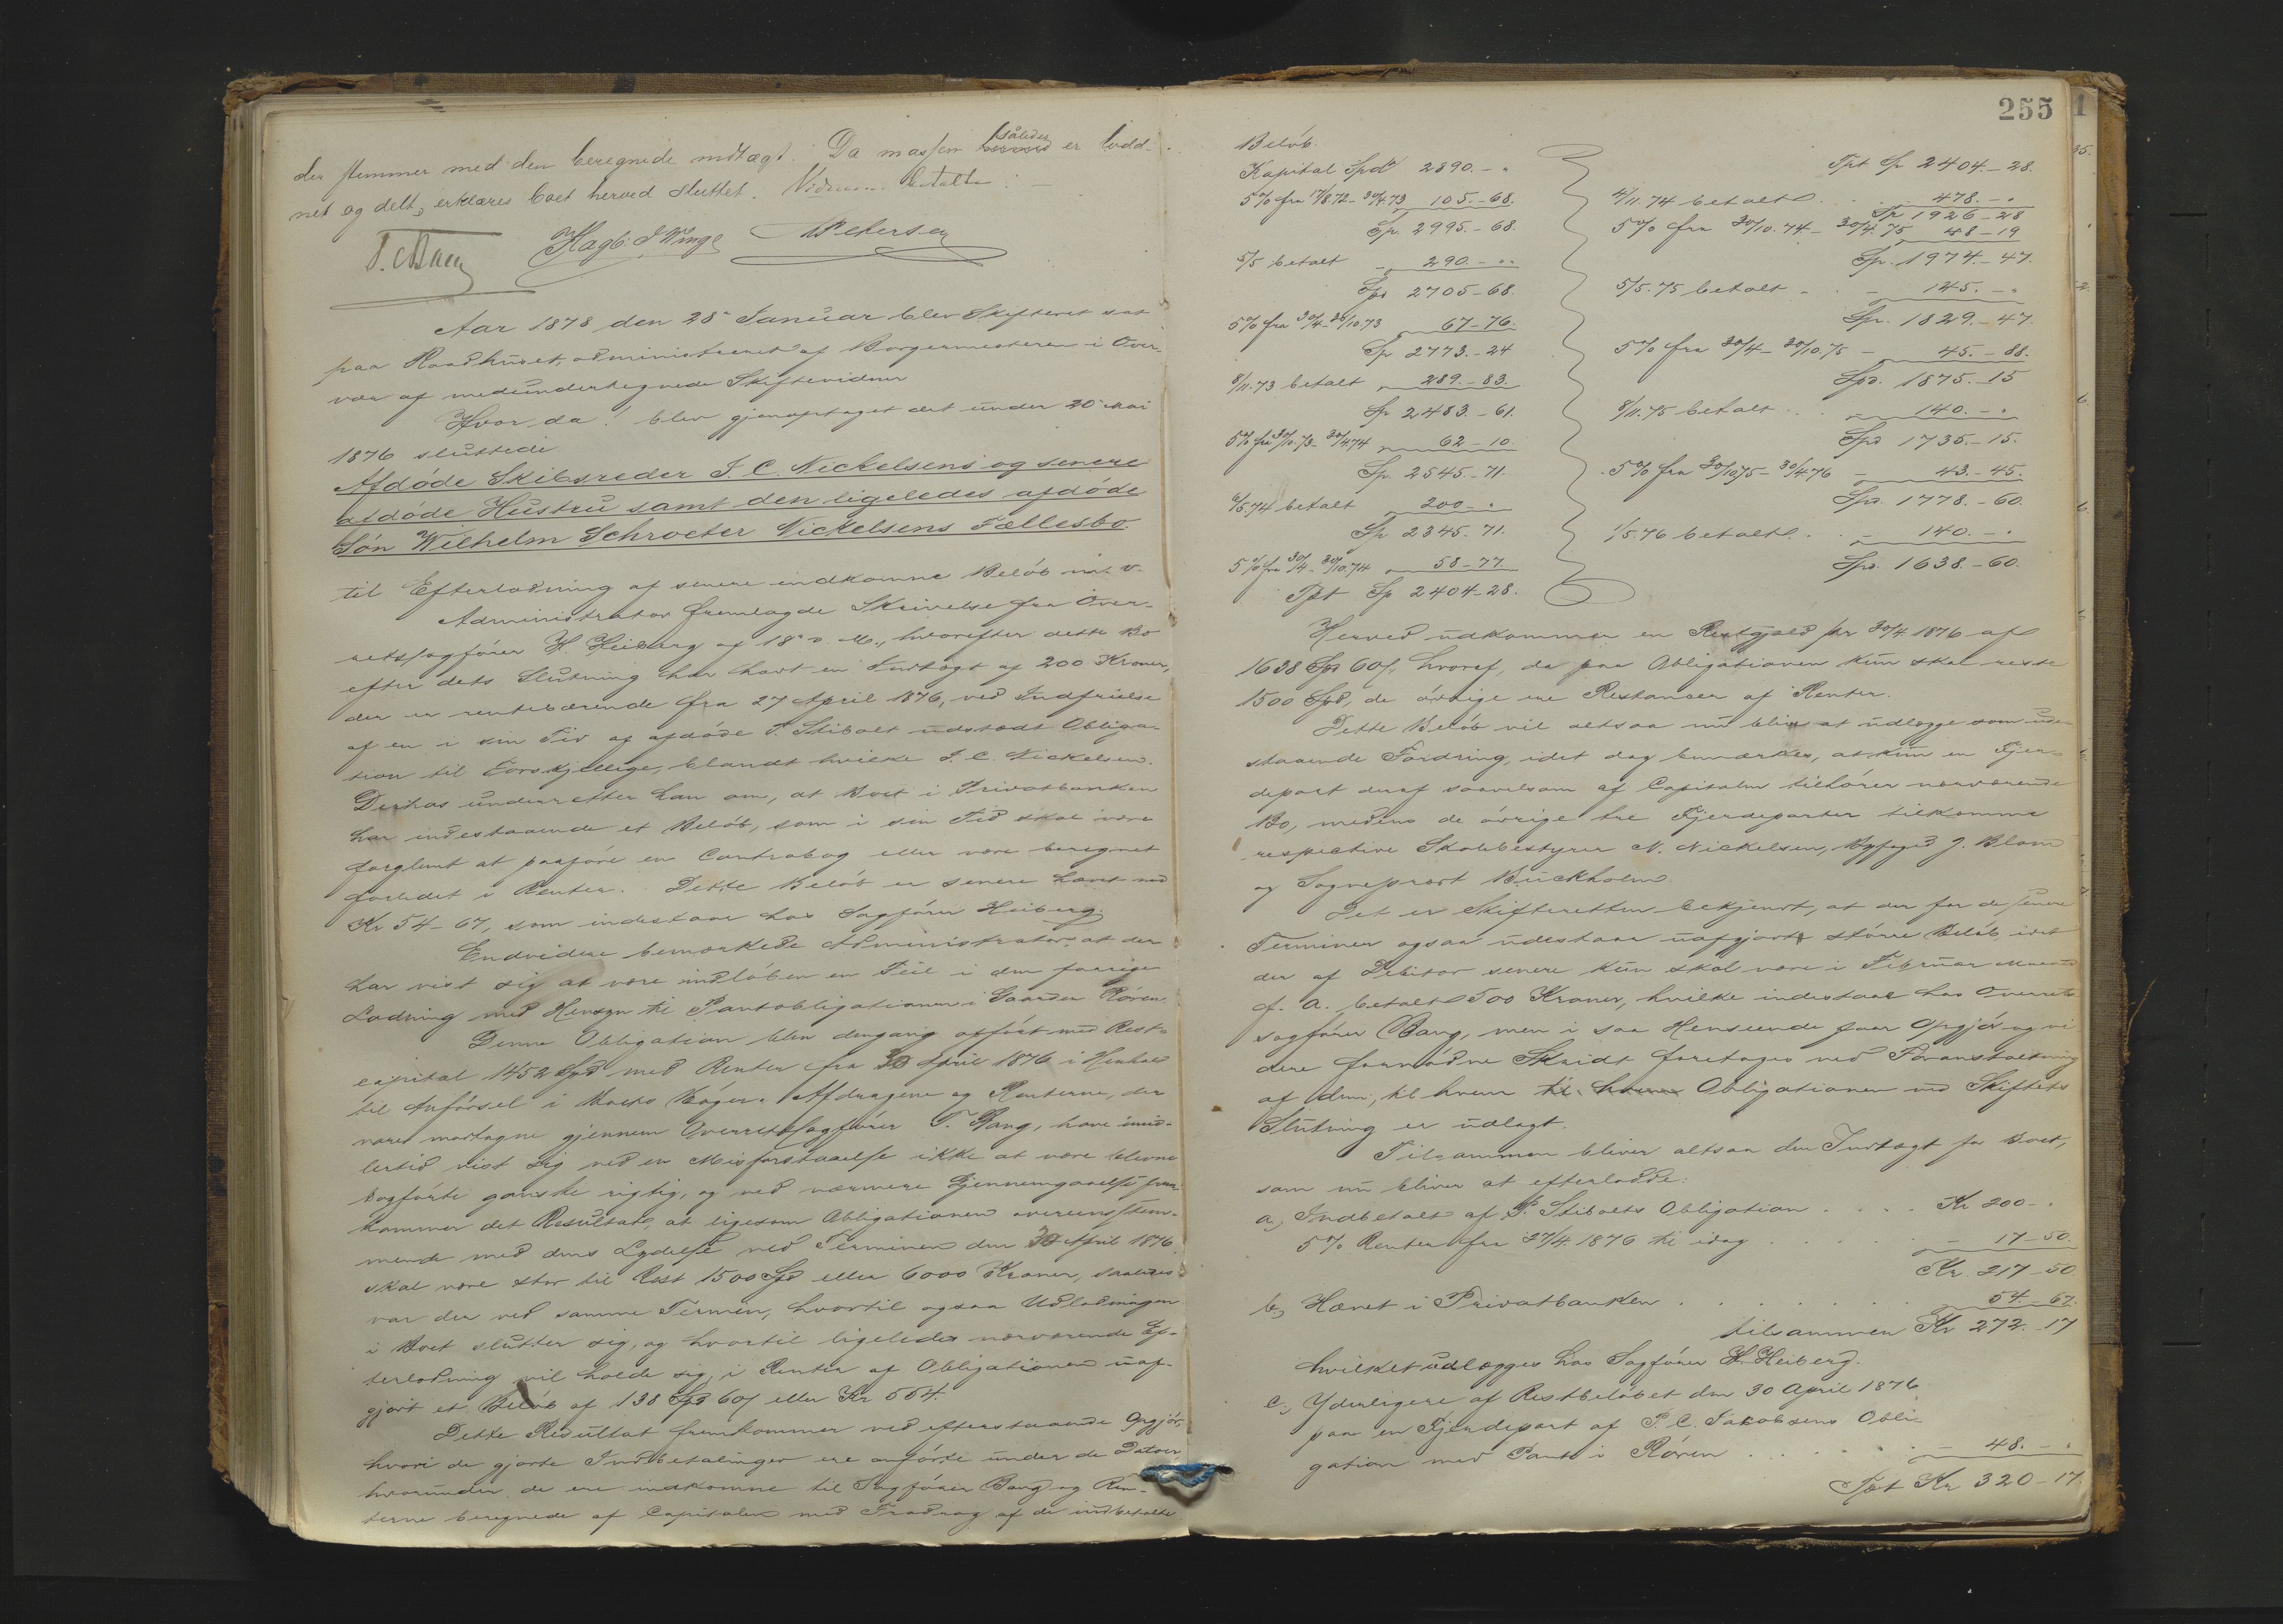 der stemmer med den beregnede indtægt. Da massen således er lodd-
net og delt, erklæres boet herved sluttet. Vidnerne betalte.
Hagb. J Winge Petersen
Aar 1878 den 28de Januar blev Skifteret sat
paa Raadhuset, administreret af Borgermesteren i Over-
vær af medundertegnede Skiftevidner
Hvor da! blev gjenoptaget det under 20de Mai
1876 sluttede
Afdøde Skibsreder J. C. Nickelsens og senere
afdøde Hustru samt den ligeledes afdøde
Søn Wilhelm Schroeter Nickelsens Fællesbo
til Efterlodning af senere indkomne Beløb m. v.
Administrator fremlagde Skrivelse fra Over-
retssagfører H. Heiberg af 18de d. M., hvorefter dette Bo
efter dets Slutning har havt en Indtægt af 200 Kroner,
der er rentebærende fra 27 April 1876, ved Indfrielse
af en i sin Tid af afdøde P. Stibolt udstædt Obliga-
tion til Forskjellige, blandt hvilke J. C. Nickelsen.
Derhos underretter han om, at Boet i Privatbanken
har indestaaende et Beløb, som i sin Tid skal være
forglemt at paaføre en Contrabog eller være beregnet
forlidet i Renter. Dette Beløb er senere hævet med
Kr 54-67, som indestaar hos Sagfører Heiberg.
Endvidere bemærkede Administrator, at der
har vist sig at være indløben en Feil i den forrige
Lodning med Hensyn til Pantobligationen i Gaarden Røren.
Denne Obligation blev dengang opført med Rest-
capital 1452 Spd med Renter fra 30 April 1876 i Henhold
til Anførsel i Boets Bøger. Afdragene og Renterne, der
vare modtagne gjennem Overretssagfører T. Bang, have imid-
lertid vist sig ved en Misforstaaelse ikke at være blevne
bogførte ganske rigtig, og ved nærmere Gjennemgaaelse frem-
kommer det Resultat, at ligesom Obligationen overensstem-
mende med dens Lydelse ved Terminen den 30 April 1876
skal være stor til Rest 1500 Spd eller 6000 Kroner, saaledes
var der ved samme Termin, hvortil ogsaa Udlodningen
i Boet slutter sig, og hvortil ligeledes nærværende Ef-
terlodning vil holde sig, i Renter af Obligationen uaf-
gjort et Beløb af 138 Spd 60 ß eller Kr 554.
Dette Resultat fremkommer ved efterstaaende Opgjør,
hvori de gjorte Indbetalinger ere anførte under de Datoer
hvorunder de ere indkomne til Sagfører Bang og Ren-
terne beregnede af Capitalen med Fradrag af de indbetalte
255
Beløb.
Kapital Spd 2890.-"
5% fra 17/8 72-30/4 73 105.-68.
Sp. 2995.-68.
5/5 betalt - 290.-""
Spd 2705-68.
5% fra 30/4-30/10.73 67-76.
Sp 2773.-24
8/11.73 betalt 289.-83.
Sp 2483.-61.
5% fra 30/10.73-30/4 74 62-10.
Sp. 2545.-71.
6/5.74 betalt 200-"
Sp 2345.71.
5% fra 30/4-30/10.74 58-77.
Tpt Sp 2404-28.
Tpt Sp 2404.-28.
4/11.74 betalt . . 478.-"
Sp 1926-28
5% fra 30/10.74-30/4.75 48-19
Sp. 1974.-47.
5/5.75 betalt - . - 145.-"
Sp. 1829.-47.
5% fra 30/4-30/10.75 - 45.-88.
Spd. 1875.-15
8/11.75 betalt . . 140.-"
Spd 1735.-15.
5% fra 30/10 75-30/4 76 - 43.-45.
Spd. 1778.-60.
1/5.76 betalt . . - 140.-"
Spd. 1638.-60.
Herved udkommer en Restgjæld pr 30/4 1876 af
1638 Spd 60 ß, hvoraf, da paa Obligationen kun skal reste
1500 Spd, de øvrige ere Restancer af Renter.
Dette Beløb vil altsaa nu blive at udlægge som ude-
staaende Fordring, idet dog bemærkes, at kun en Fjer-
depart deraf saavelsom af Capitalen tilhører nærværende
Bo, medens de øvrige tre Fjerdeparter tilkomme
respective Skolebestyrer N. Nickelsen, Byfoged J. Blom
og Sogneprest Buckholm.
Det er Skifteretten bekjendt, at der for de senere
Terminer ogsaa udestaar uafgjort større Beløb, idet
der af Debitor senere kun skal være i Februar Maaned
f. A. betalt 500 Kroner, hvilke indestaar hos Overrets-
sagfører Bang, men i saa Henseende faar Opgjør og vi-
dere fornødne Skridt foretages ved Foranstaltning
af dem, til hvem til hvem Obligationen ved Skiftets
Slutning er udlagt.
Tilsammen bliver altsaa den Indtægt for Boet,
som nu bliver at efterlodde:
a, Indbetalt af P. Stibolts Obligation . . . . Kr 200-"
5% Renter fra 27/4.1876 til idag . . . . - 17-50.
Kr. 217-50
b, Hævet i Privatbanken . . . . . . 54.-67.
tilsammen Kr 272.-17
hvilket udlægges hos Sagfører H. Heiberg.
c, Yderligere af Restbeløbet den 30 April 1876
paa en Fjerdepart af P. C. Jakobsens Obli-
gation med Pant i Røren . . . . - 48.-"
Tpt Kr 320-17.